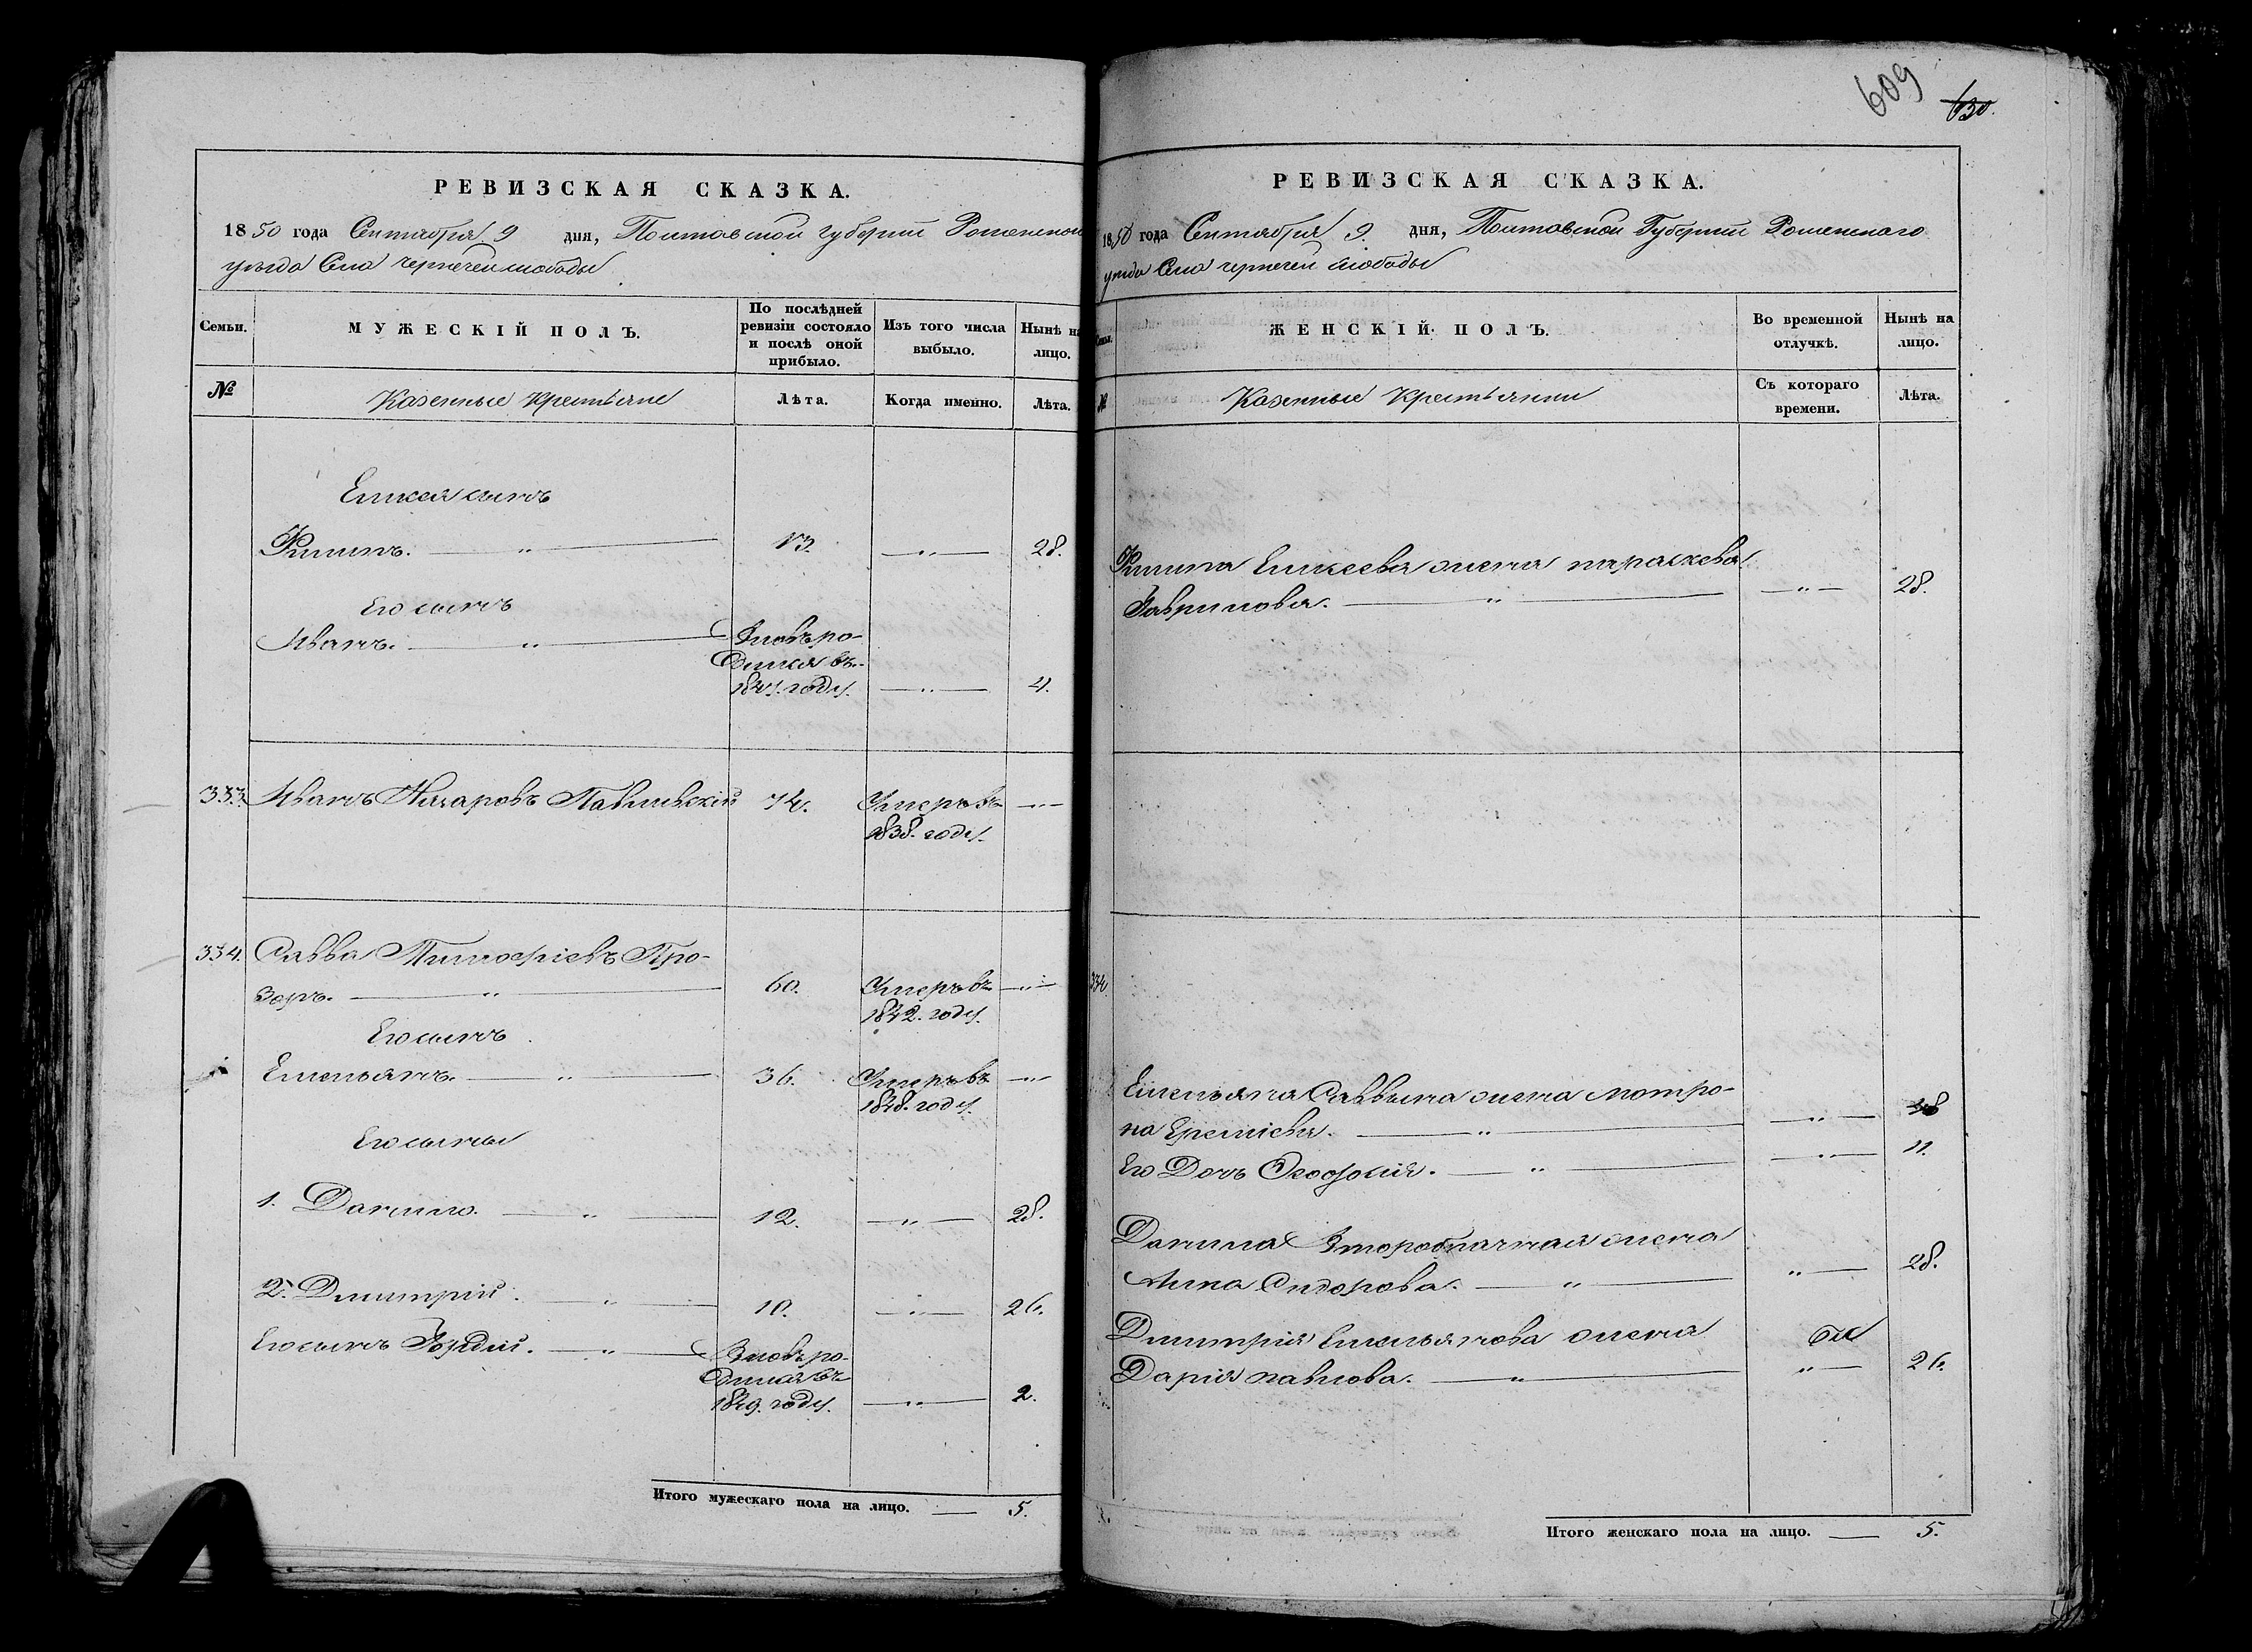 РЕВИЗСКАЯ СКАЗКА.
1850 года Сентября 9 дня, Полтавской губернии Роменского
уезда Села Чернечей слободы
Семьи.
МУЖЕСКІЙ ПОЛЪ.
По послѣдней ревизіи состояло и послѣ оной прибыло.
Изъ того числа выбыло.
Нынѣ на лицо.
№
Казенные Крестьяне
Лѣта.
Когда именно.
Лѣта.
Елисея сынъ
Филипъ. — " — 13. — " — 28.
Его сынъ
Иванъ. — " — Вновь ро-
дился въ
184 . году. — " — 4.
333. Иванъ Назаровъ Павловскій 74. Умеръ въ — " —
1838. году.
334. Савва Тимофіевъ Про-
зоръ. — " — 60. Умеръ въ — " —
1842. году.
Его сынъ
Емельянъ. — " — 36. Умеръ въ — " —
1848. году.
Его сыны
1. Данило. — " — 12. — " — 28.
2. Дмитрій. — " — 10. — " — 26.
Его сынъ Гордій. — " — Вновь ро-
дился въ
1849. году. — " — 2.
Итого мужескаго пола на лицо. — 5.
609
630.
РЕВИЗСКАЯ СКАЗКА.
1850 года Сентября 9. дня, Полтавской Губерніи Роменскаго
уезда Села Чернечей слободы
Семьи.
ЖЕНСКІЙ ПОЛЪ.
Во временной отлучкѣ.
Нынѣ на лицо.
№
Казенные Крестьянки
Съ котораго времени.
Лѣта.
Филипа Елисеева жена Параскева
Гаврилова. — " — — " — 28.
334.
Емельяна Саввина жена Мотро-
на Еремiева. — " — — " —
Его Дочь Феодосія. — " — — " — 11.
Данила Второбрачная жена
Анна Сидорова. — " — " — 28.
Дмитрія Емельянова жена
Дарія Павлова. — " — " — 26.
Итого женскаго пола на лицо. — 5.